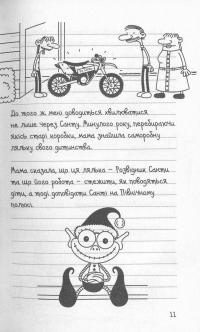 До того ж мені доводиться хвилюватися
не лише через Санту. Минулого року, перебираючи
якісь старі коробки, мама знайшла саморобну
ляльку свого дитинства.
Мама сказала, що ця лялька – Розвідник Санти
та що його робота – стежити, як поводяться
діти, а тоді доповідати Санті на Північному
полюсі.
11